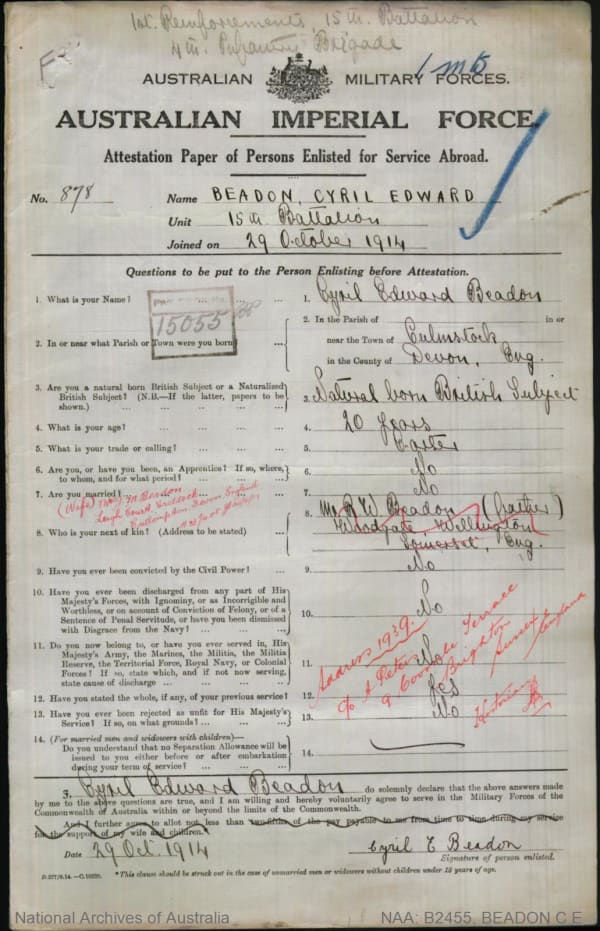 1st. Reinforcements 15th. Battalion
4th. Infantry Brigade
AUSTRALIAN MILITARY FORCES.
AUSTRALIAN IMPERIAL FORCE.
Attestation Paper of Persons Enlisted for Service Abroad.
No. 878 Name BEADON, CYRIL EDWARD
Unit 15th Battalion
Joined on 29 October 1914
Questions to be put to the Person Enlisting before Attestation.
1. What is your Name? ... ... ... 1. Cyril Edward Beadon
15055
2. In or near what Parish or Town were you born? ... 2. In the Parish of in or
near the Town of Culmstock
in the County of Devon, Eng.
3. Are you a natural born British Subject or a Naturalized British Subject? (N.B.—If the latter, papers to be shown.) ... 3. Natural born British Subject
4. What is your age? ... ... ... 4. 20 years
5. What is your trade or calling? ... ... 5. Carter
6. Are you, or have you been, an Apprentice? If so, where, to whom, and for what period? ... 6. No
7. Are you married? ... 7. No
(Wife) M Beadon
Leigh Court
Cullompton Devon England
8. Who is your next of kin? (Address to be stated) ... 8. Mr R. W. Beadon (father)
Woodgate, Wellington
Somerset, Eng.
9. Have you ever been convicted by the Civil Power? ... 9. No
10. Have you ever been discharged from any part of His Majesty's Forces, with Ignominy, or as Incorrigible and Worthless, or on account of Conviction of Felony, or of a Sentence of Penal Servitude, or have you been dismissed with Disgrace from the Navy? ... 10. No
11. Do you now belong to, or have you ever served in, His Majesty's Army, the Marines, the Militia, the Militia Reserve, the Territorial Force, Royal Navy, or Colonial Forces? If so, state which, and if not now serving, state cause of discharge ... 11. No
Address 1939.
c/o A Peters
9 Terrace
Brighton
Sussex
England
12. Have you stated the whole, if any, of your previous service? 12. Yes
13. Have you ever been rejected as unfit for His Majesty's Service? If so, on what grounds? ... 13. No
14. (For married men and widowers with children)—
Do you understand that no Separation Allowance will be issued to you either before or after embarkation during your term of service? ... 14.
I, Cyril Edward Beadon do solemnly declare that the above answers made
by me to the above questions are true, and I am willing and hereby voluntarily agree to serve in the Military Forces of the
Commonwealth of Australia within or beyond the limits of the Commonwealth.
*And I further agree to allot not less than of the pay payable to me from time to time during my service
for the support of my wife and children.
Date 29 Oct. 1914 Cyril E Beadon
Signature of person enlisted.
*This clause should be struck out in the case of unmarried men or widowers without children under 18 years of age.
National Archives of Australia NAA: B2455, BEADON C E